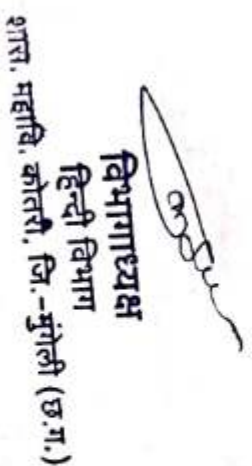 विभागाध्यक्ष
हिन्दी विभाग
शास. महावि. कोतरी, जि.-मुंगेली (छ.ग.)